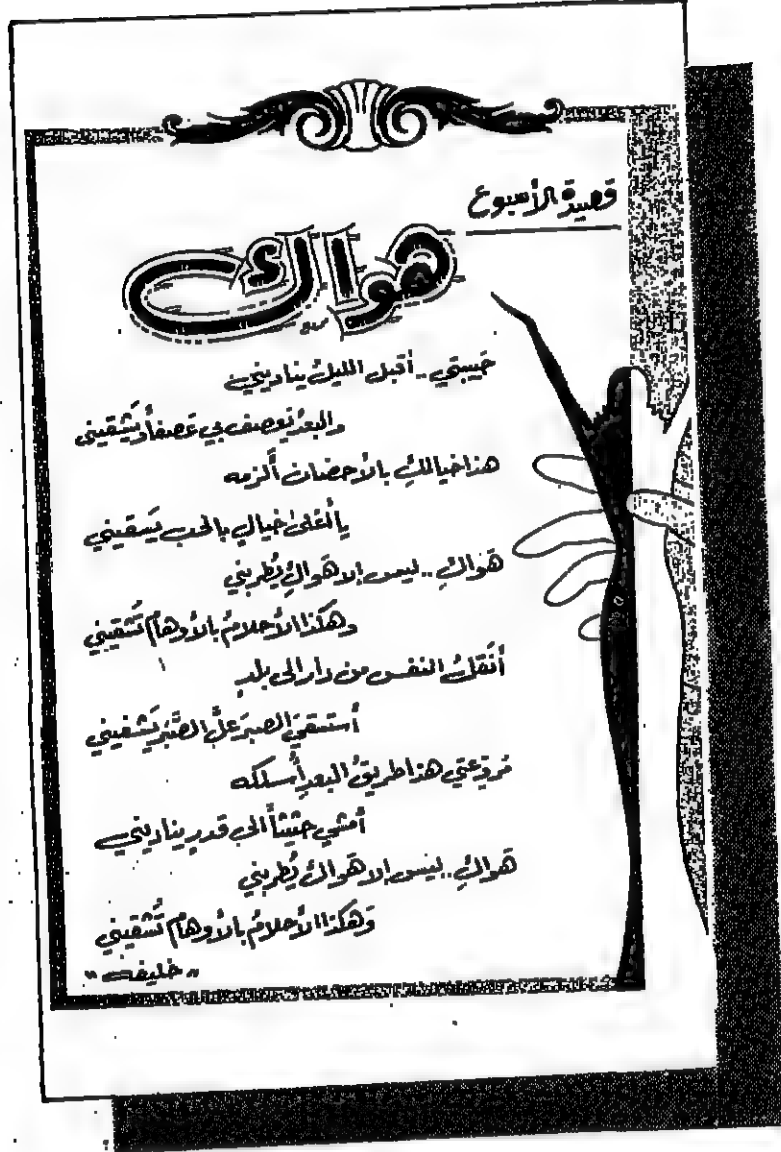 قصيدة الأسبوع
هواك
حَبيبتي .. أقبل الليلُ يناديني
والبعدُ يعصف بي عَصفاً ويُشقيني
هذا خيالكِ بالأحضان ألزمه
يا لَغلىٰ خيالٍ بالحب يَسقيني
هَواكِ .. ليس إلا هَواكِ يُطربني
وهكذا الأحلامُ بالأوهام تُشقيني
أنقلُ النفس من دار إلى بلدٍ
أستسقيَ الصبرَ علَّ الصَّبرَ يَشفيني
مُروّعتي هذا طريقُ البعدِ أسلكه
أمشي حثيثاً الى قدرٍ يناديني
هَواكِ .. ليس إلا هَواكِ يُطربني
وَهكذا الأحلامُ بالأوهام تُشقيني
"خليفه"